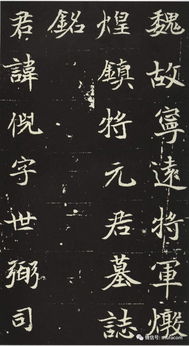 魏故寧遠將軍燉
煌鎮將元君墓誌
銘
君諱倪字世弼司
微信号: shufacom